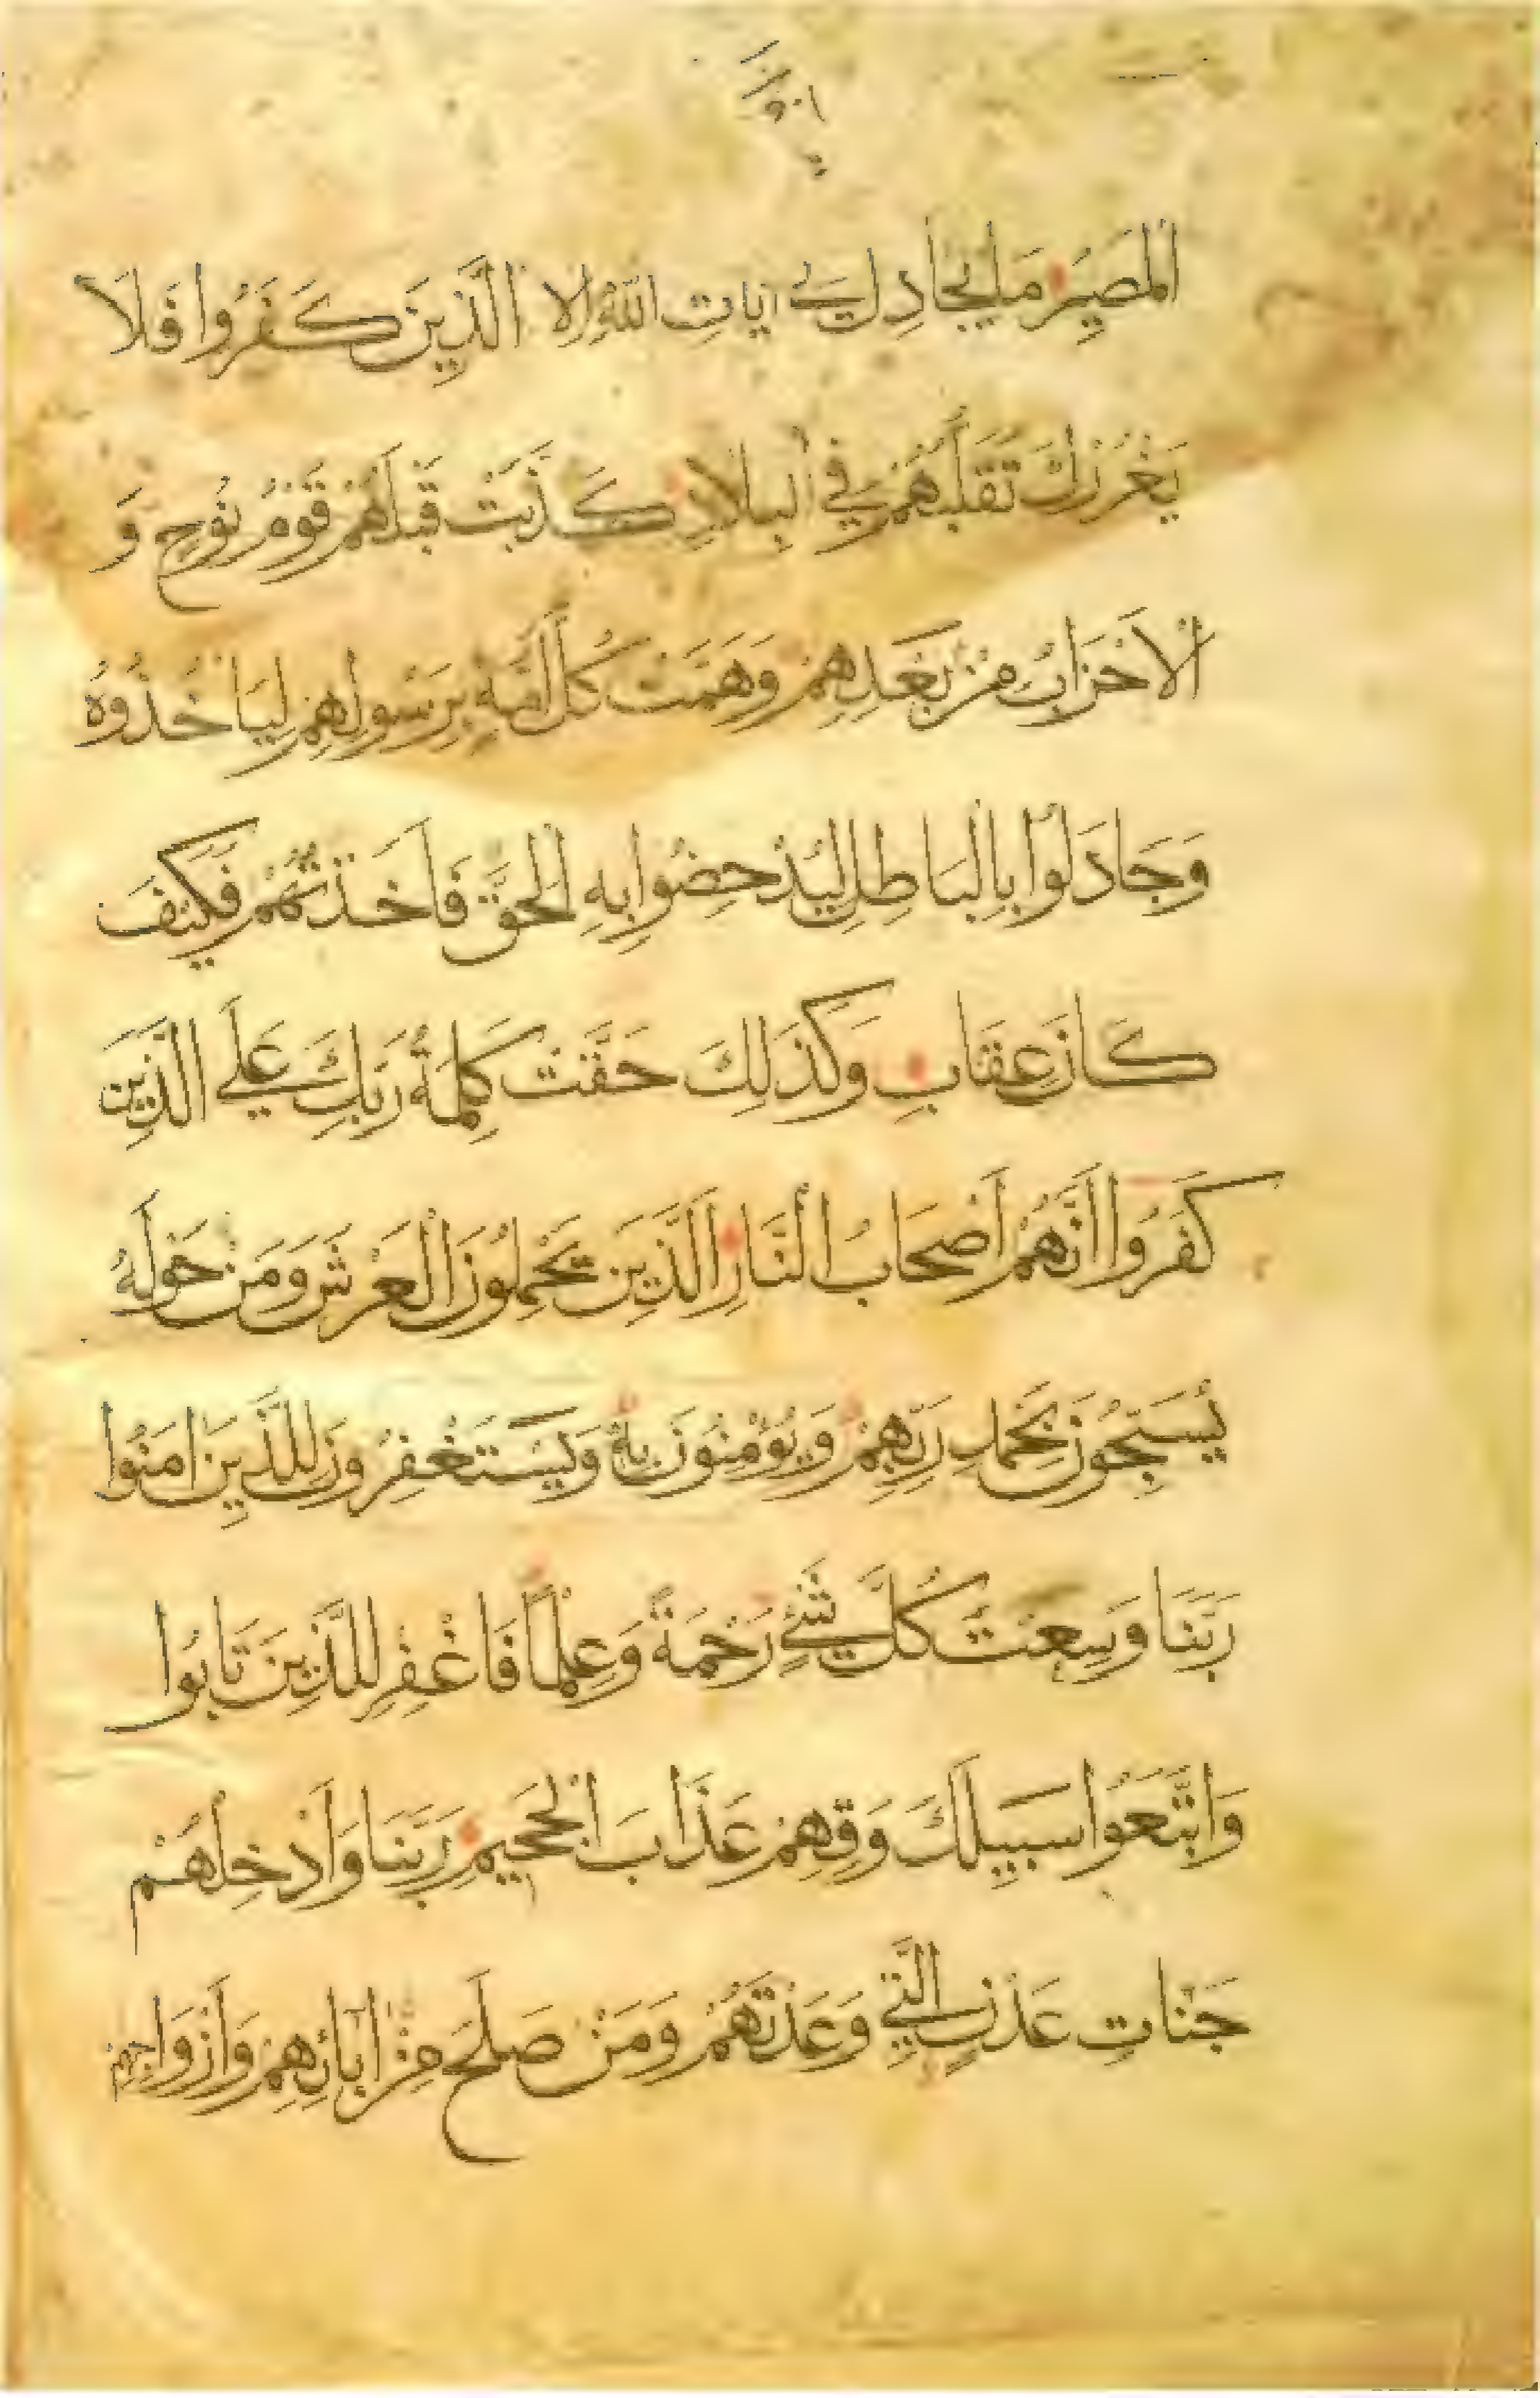 الْمَصِيرُ مَا يُجَادِلُ فِي آيَاتِ اللَّهِ إِلَّا الَّذِينَ كَفَرُوا فَلَا
يَغْرُرْكَ تَقَلُّبُهُمْ فِي الْبِلَادِ كَذَّبَتْ قَبْلَهُمْ قَوْمُ نُوحٍ وَ
الْأَحْزَابُ مِنْ بَعْدِهِمْ وَهَمَّتْ كُلُّ أُمَّةٍ بِرَسُولِهِمْ لِيَأْخُذُوهُ
وَجَادَلُوا بِالْبَاطِلِ لِيُدْحِضُوا بِهِ الْحَقَّ فَأَخَذْتُهُمْ فَكَيْفَ
كَانَ عِقَابِ وَكَذَلِكَ حَقَّتْ كَلِمَةُ رَبِّكَ عَلَى الَّذِينَ
كَفَرُوا أَنَّهُمْ أَصْحَابُ النَّارِ الَّذِينَ يَحْمِلُونَ الْعَرْشَ وَمَنْ حَوْلَهُ
يُسَبِّحُونَ بِحَمْدِ رَبِّهِمْ وَيُؤْمِنُونَ بِهِ وَيَسْتَغْفِرُونَ لِلَّذِينَ آمَنُوا
رَبَّنَا وَسِعْتَ كُلَّ شَيْءٍ رَحْمَةً وَعِلْمًا فَاغْفِرْ لِلَّذِينَ تَابُوا
وَاتَّبَعُوا سَبِيلَكَ وَقِهِمْ عَذَابَ الْجَحِيمِ رَبَّنَا وَأَدْخِلْهُمْ
جَنَّاتِ عَدْنٍ الَّتِي وَعَدْتَهُمْ وَمَنْ صَلَحَ مِنْ آبَائِهِمْ وَأَزْوَاجِهِمْ